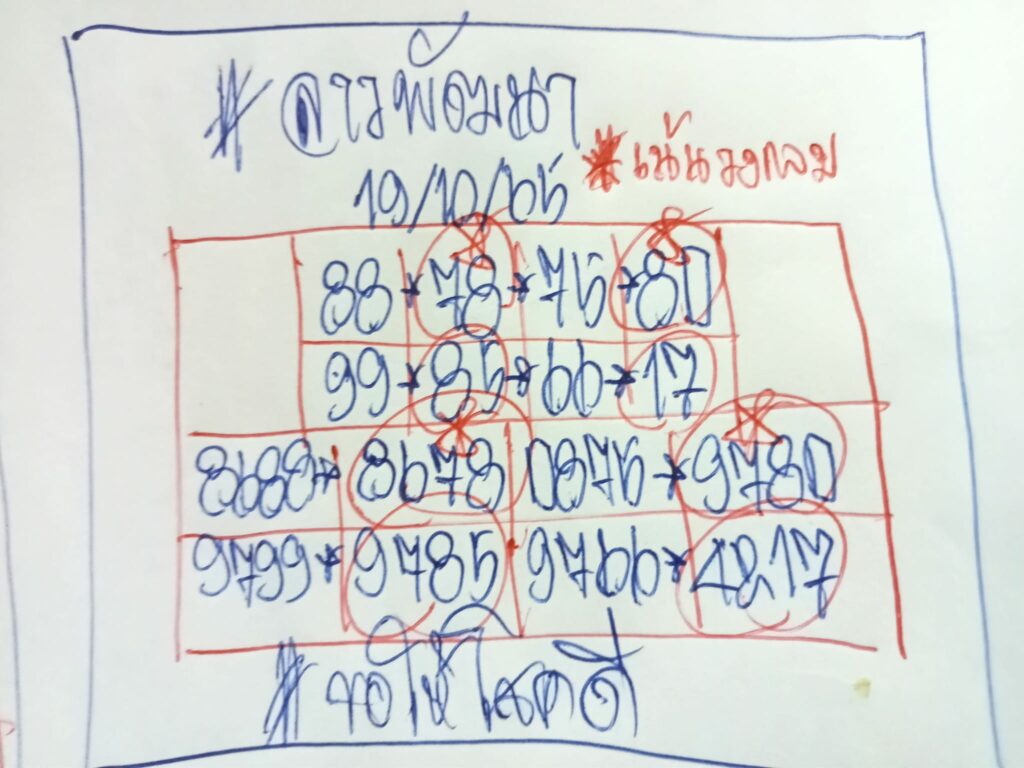 #ลาวพัฒนา
*เน้นวงกลม
19/10/65
88*78*75*80
99*85*66*17
8688*8678 0875*9780
9799*9785 9766*4217
#ขอให้โชคดี